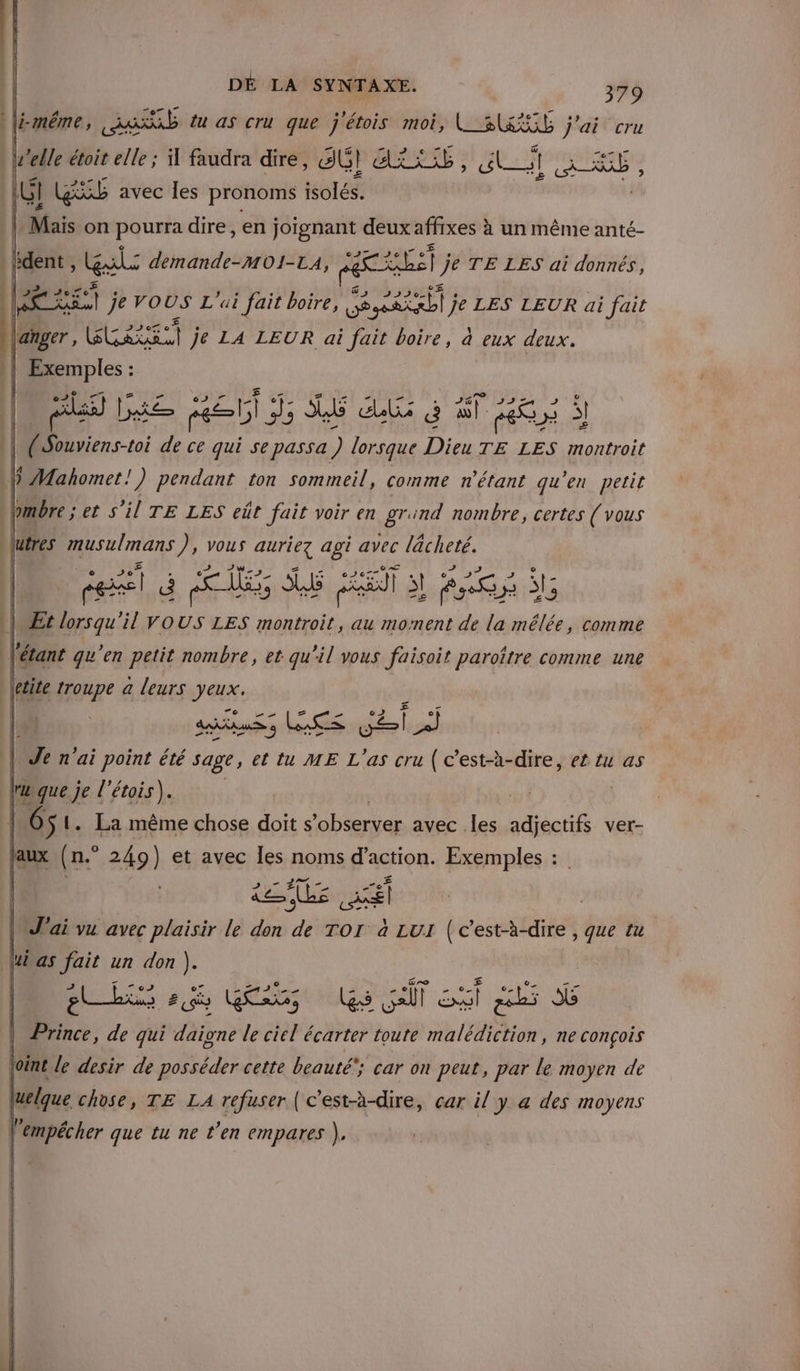 DE LA SYNTAXE. 379
i-même, ظننتنى tu as cru que j'étois moi, ظننتها j'ai cru
u'elle étoit elle; il faudra dire, ظننتك إياك,
إياها avec les pronoms isolés.
Mais on pourra dire, en joignant deux affixes à un même anté-
ident, demande-MOI-LA, je TE LES ai donnés,
je VOUS L'ai fait boire, je LES LEUR ai fait
anger, je LA LEUR ai fait boire, à eux deux.
Exemples:
إِذْ يُرِيكَهُمُ ٱللّٰهُ فِى مَنَامِكَ قَلِيلًا وَلَوْ أَرَاكَهُمْ كَثِيرًا لَفَشِلْتُمْ
(Souviens-toi de ce qui se passa) lorsque Dieu TE LES montroit
Mahomet!) pendant ton sommeil, comme n'étant qu'en petit
ombre; et s'il TE LES eût fait voir en grand nombre, certes (vous
utres musulmans), vous auriez agi avec lâcheté.
وَإِذْ يُرِيكُمُوهُمْ إِذِ ٱلْتَقَيْتُمْ قَلِيلًا وَيُقَلِّلُكُمْ فِى أَعْيُنِهِمْ
Et lorsqu'il VOUS LES montroit, au moment de la mêlée, comme
'étant qu'en petit nombre, et qu'il vous faisoit paroître comme une
etite troupe à leurs yeux.
لم أكن حكيما وحسبتنيه
Je n'ai point été sage, et tu ME L'as cru (c'est-à-dire, et tu as
ru que je l'étois).
651. La même chose doit s'observer avec les adjectifs ver-
aux (n.° 249) et avec les noms d'action. Exemples:
J'ai vu avec plaisir le don de TOI à LUI (c'est-à-dire, que tu
ui as fait un don).
فلا تطمع أبيت اللعن فيها ومنعكها بشىء يستطاع
Prince, de qui daigne le ciel écarter toute malédiction, ne conçois
oint le desir de posséder cette beauté; car on peut, par le moyen de
uelque chose, TE LA refuser (c'est-à-dire, car il y a des moyens
'empêcher que tu ne t'en empares).